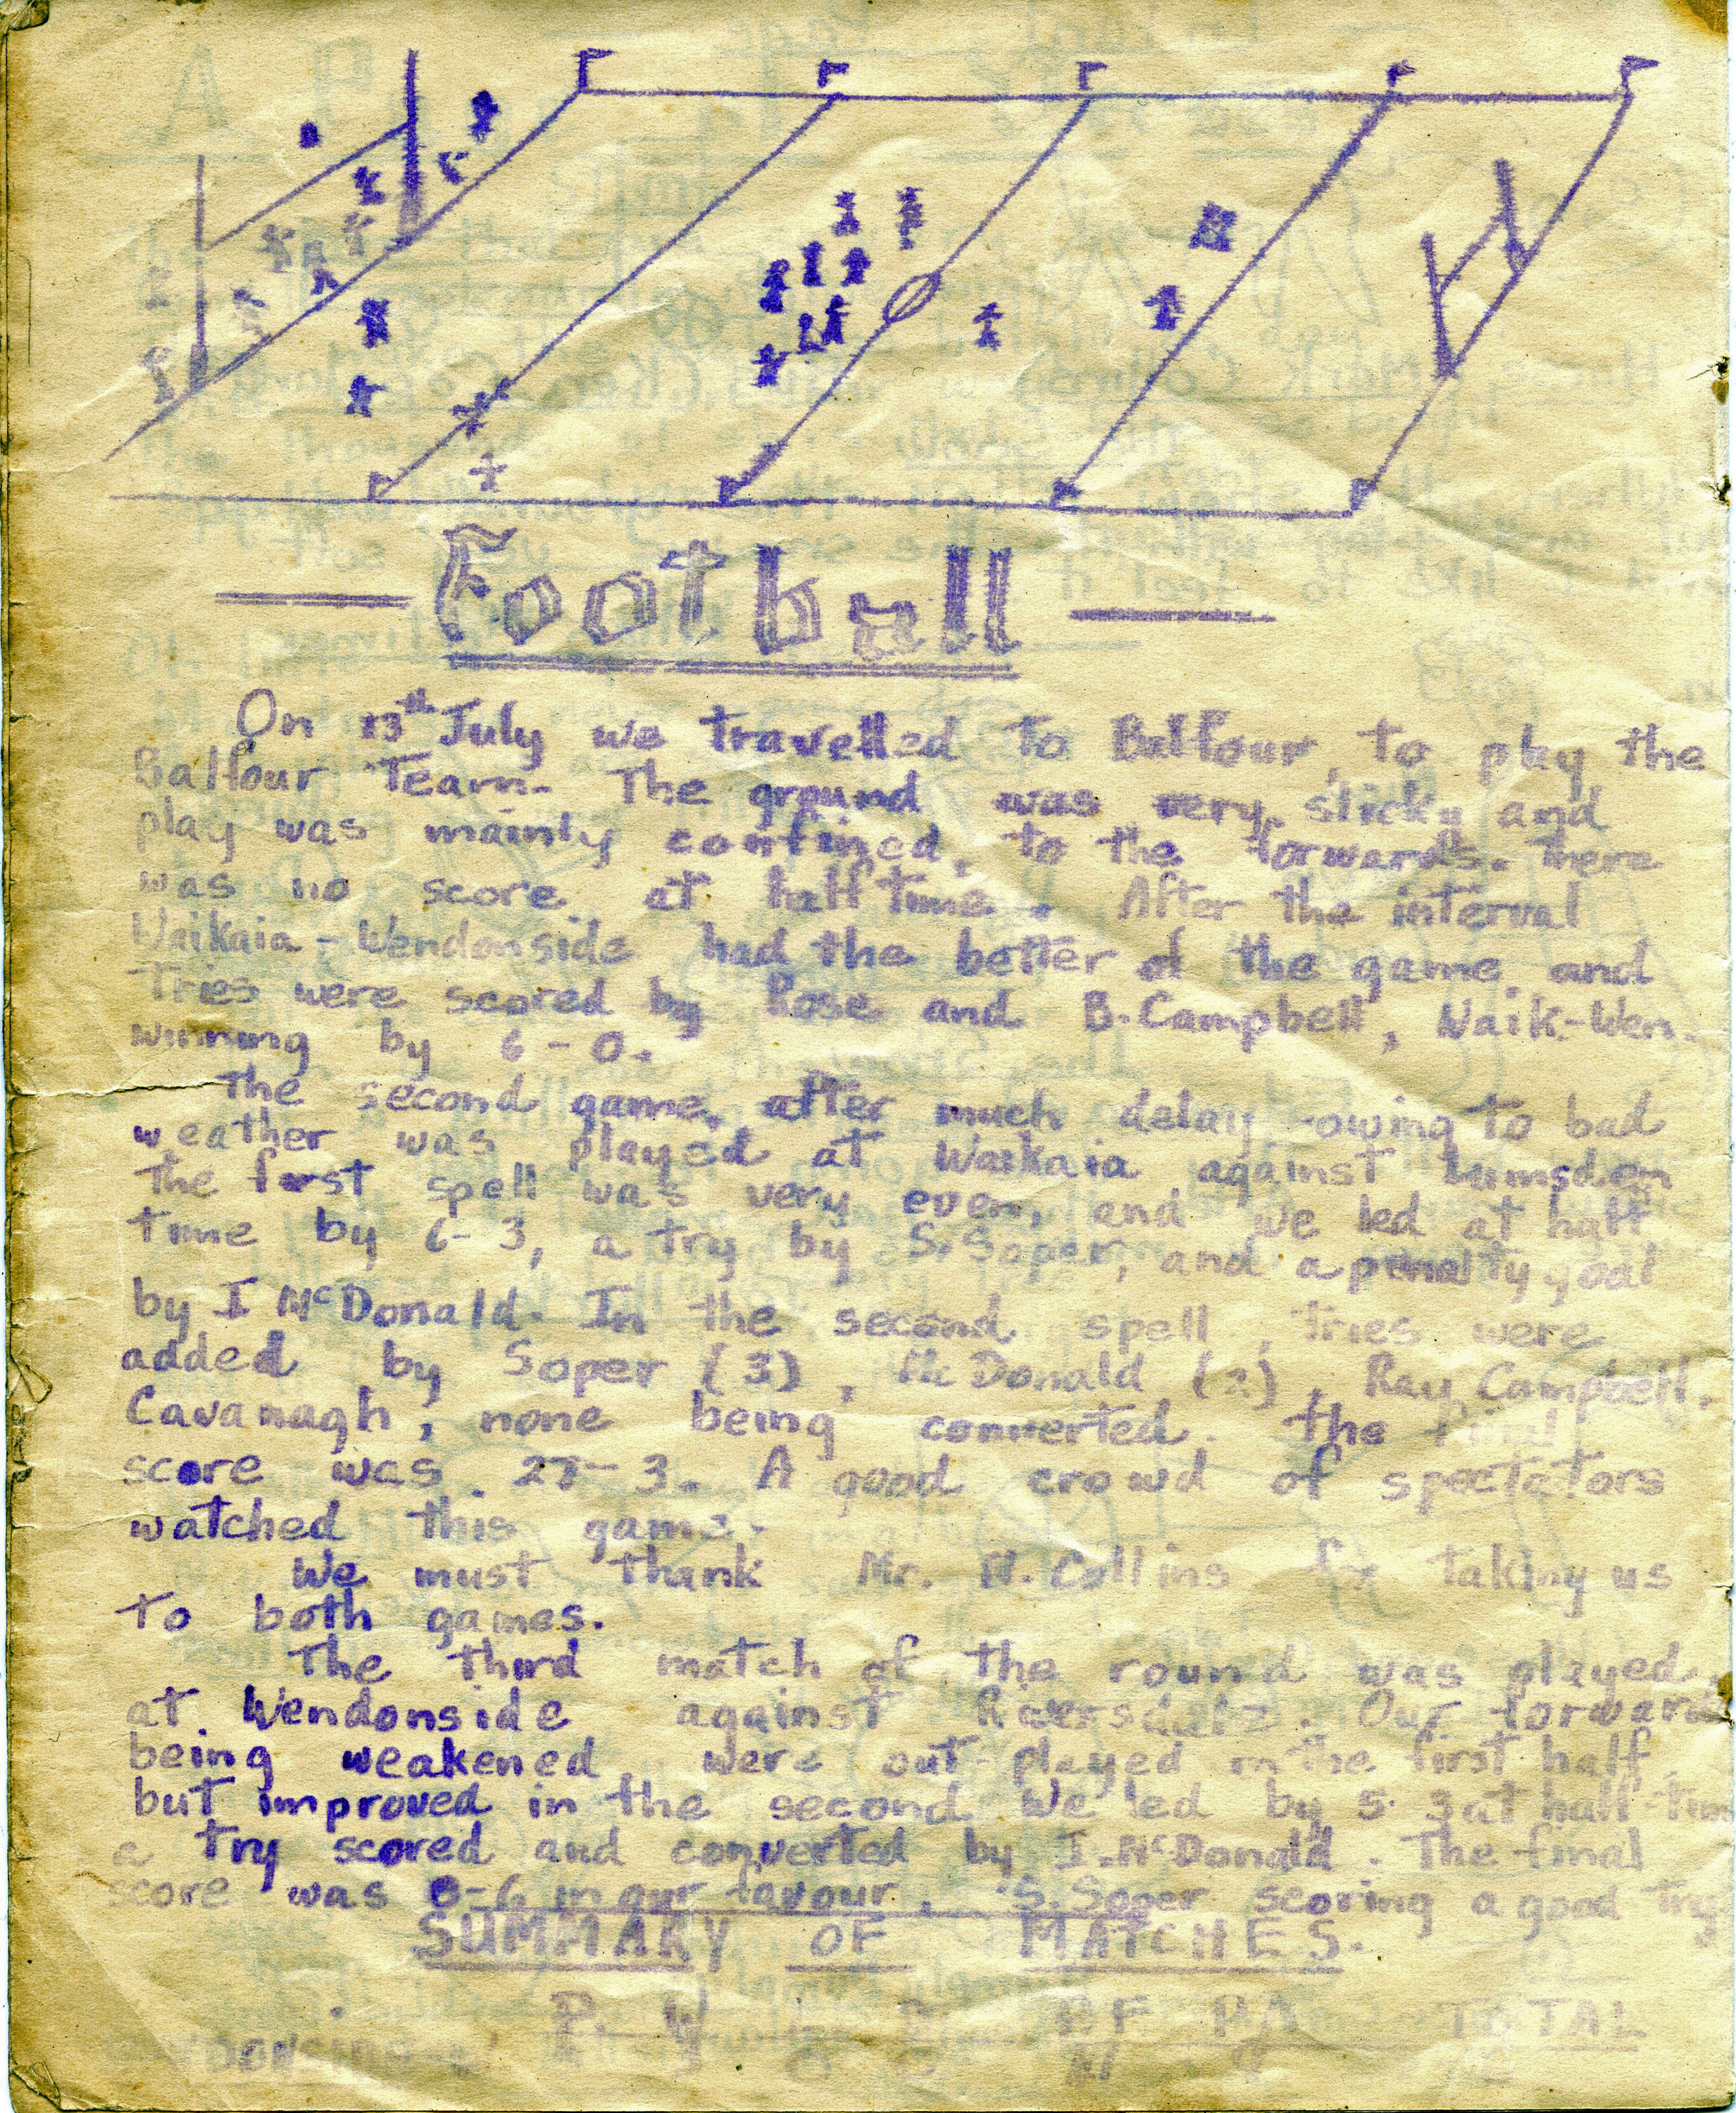 Football
On 13th July we travelled to Balfour, to play the
Balfour Team. The ground was very sticky and
play was mainly confined, to the forwards. There
was no score at half time. After the interval
Waikaia-Wendonside had the better of the game and
Tries were scored by Rose and B. Campbell, Waik-Wen.
winning by 6-0.
The second game, after much delay owing to bad
weather was played at Waikaia against Lumsden
The first spell was very even, and we led at half
time by 6-3, a try by S. Soper, and a penalty goal
by I McDonald. In the second spell, tries were
added by Soper (3), McDonald (2), Ray Campbell,
Cavanagh, none being converted. The final
score was 27-3. A good crowd of spectators
watched this game.
We must thank Mr. N. Collins for taking us
to both games.
The third match of the round was played
at Wendonside against Riversdale. Our forwards
being weakened were out-played in the first half
but improved in the second We led by 5-3 at half-time
a try scored and converted by I. McDonald. The final
score was 8-6 in our favour, S. Soper scoring a good try
SUMMARY OF MATCHES.
P. W L D P.F P.A TOTAL
3 0 0 41 9